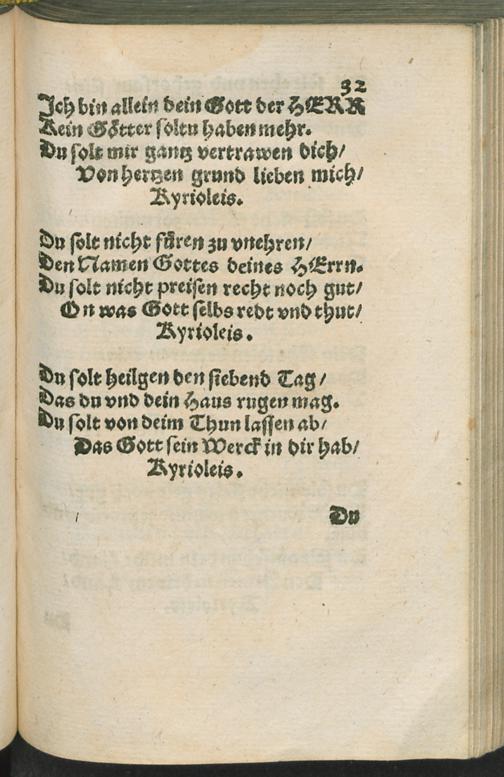 32
Ich bin allein dein Gott der HERR
Kein Götter soltu haben mehr.
Du solt mir gantz vertrawen dich/
Von hertzen grund lieben mich/
Kyrioleis.
Du solt nicht füren zu vnehren/
Den Namen Gottes deines HErrn.
Du solt nicht preisen recht noch gut/
On was Gott selbs redt vnd thut/
Kyrioleis.
Du solt heilgen den siebend Tag/
Das du vnd dein Haus rugen mag.
Du solt von deim Thun lassen ab/
Das Gott sein Werck in dir hab/
Kyrioleis.
Du